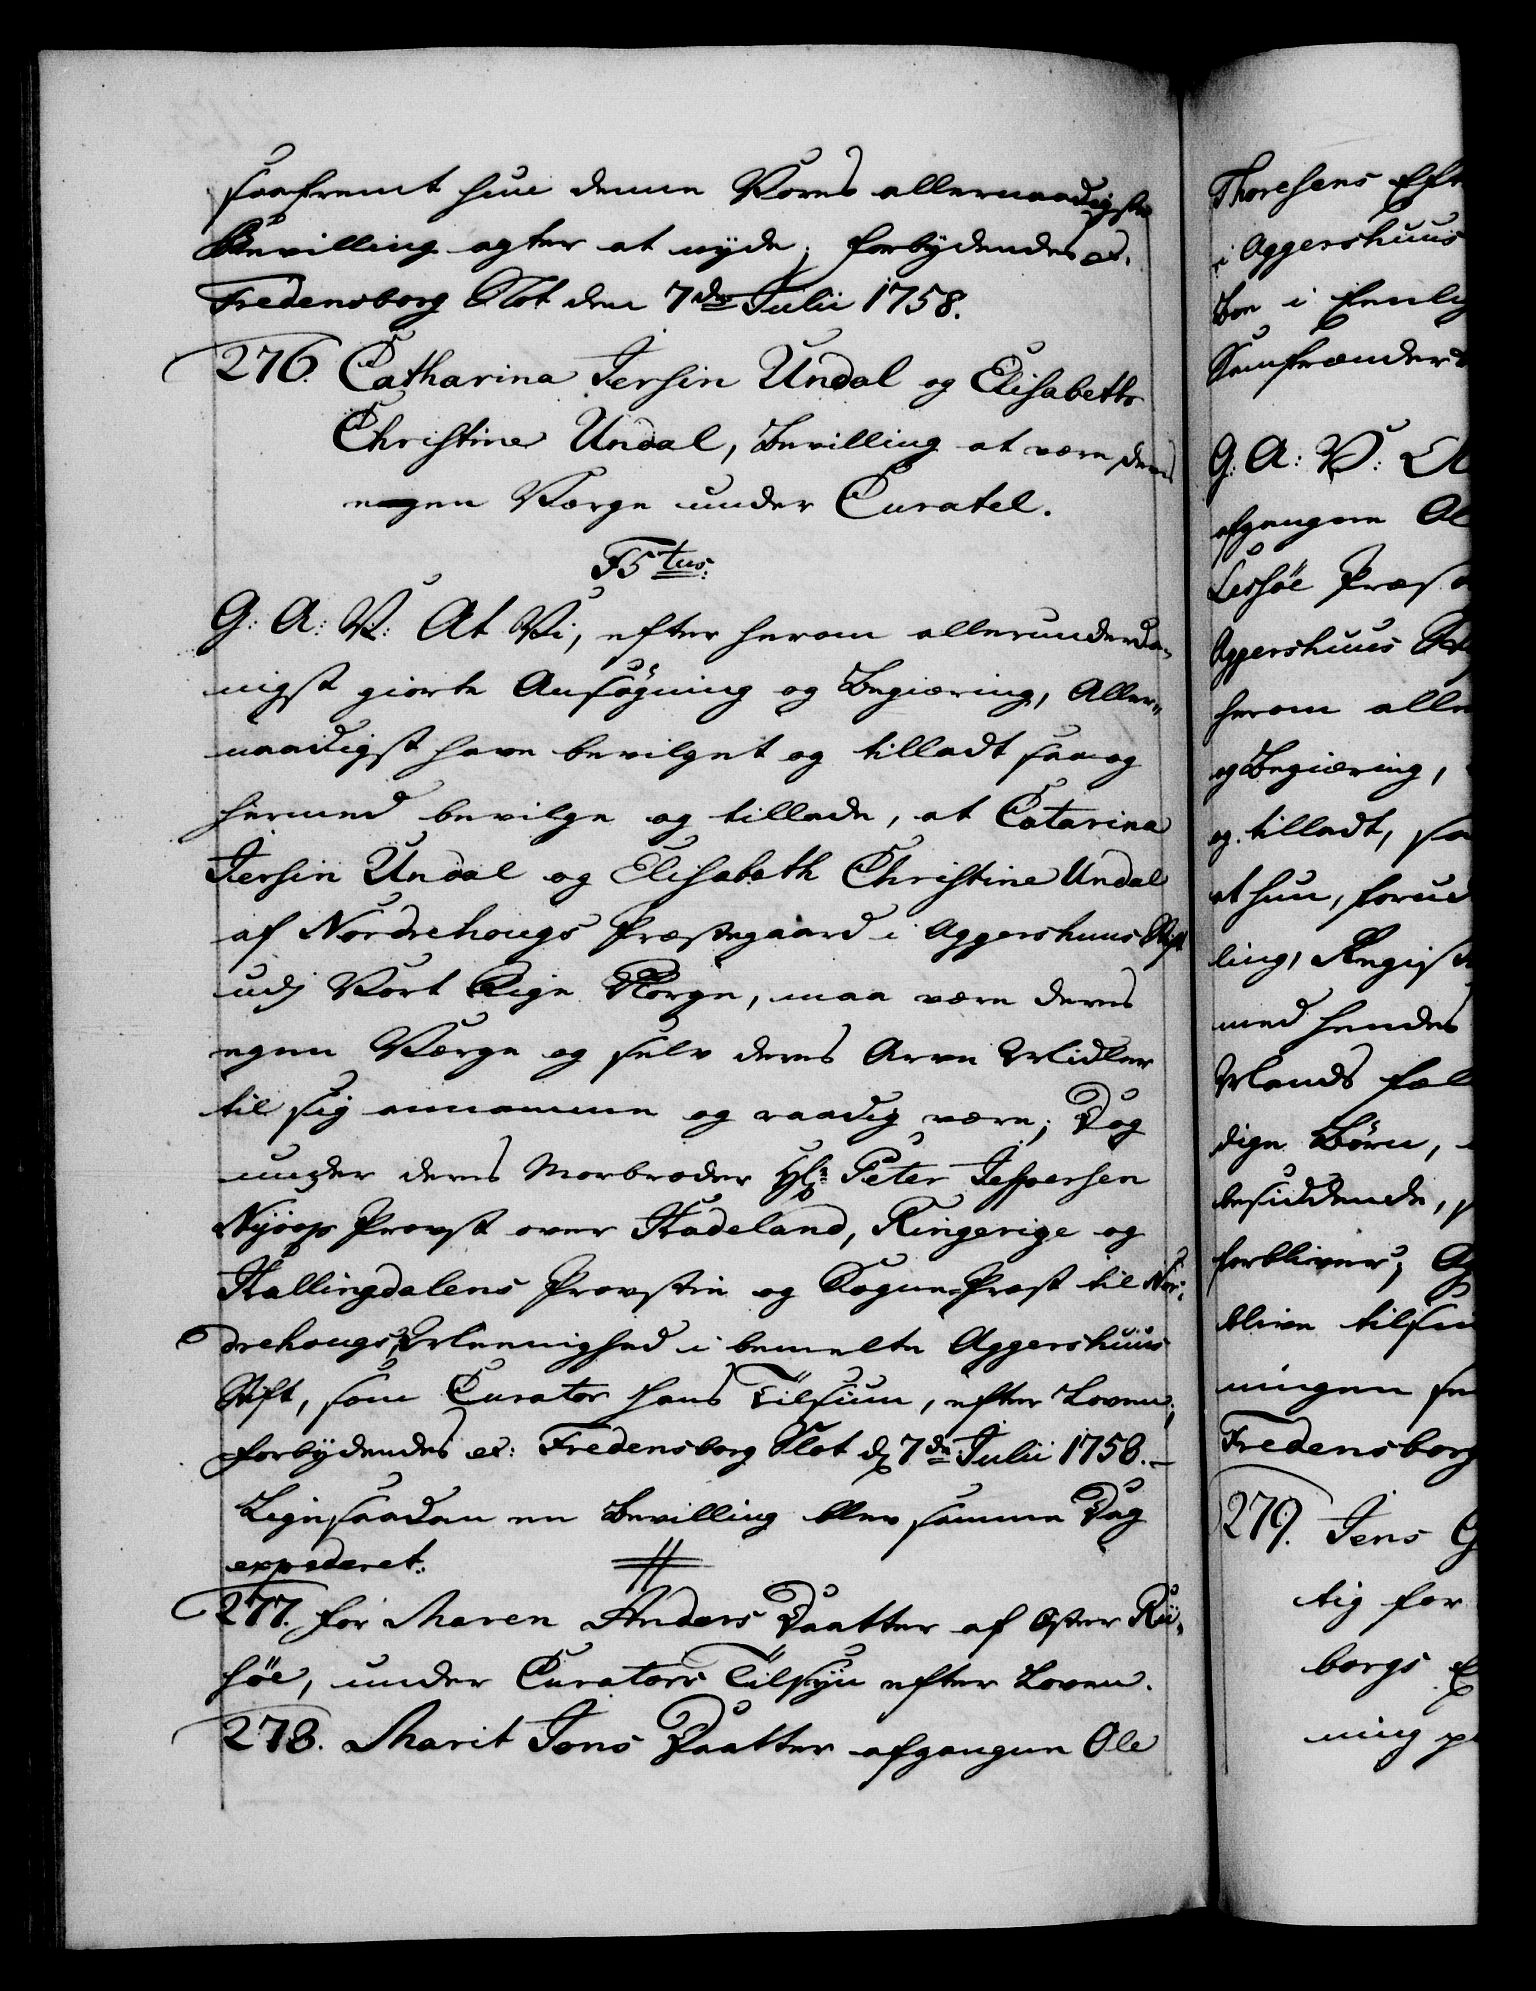 saafremt hun denne Vores allernaadigste
Bevilling agter at nyde; forbydendes &.
Fredensborg Slot den 7de Julii 1758.
276. Catharina Jersin Undal og Elisabeth
Christine Undal, Bevilling at være deres
egen Værge under Curatel.
F5tus:
G: A: V: At Vi, efter herom allerunderda-
nigst giorte Ansøgning og Begiæring, Aller-
naadigst have bevilget og tilladt saa og
hermed bevilge og tillade, at Catarina
Jersin Undal og Elisabeth Christine Undal
af Nordrehougs Præstegaard i Aggershuus Stift
udj Vort Rige Norge, maa være deres
egen Værge og selv deres Arve Midler
til sig annamme og raadig være; Dog
under deres Morbroder Hr: Peter Jespersen
Nyrop Provst over Hadeland, Ringerige og
Hallingdalens Provstie og Sogne-Præst til Nor-
drehougs Menighed i bemelte Aggershuus
Stift, som Curator hans Tilsiun, efter Loven;
forbydendes &: Fredensborg Slot d. 7de Julii 1758.
Lige saadan en Bevilling blev samme Dag
expederet:
277. for Maren Anders Daatter af Oster Rii-
söe, under Curators Tilsyn efter Loven.
278. Marit Jons Daatter afgangne Ole
Thoresens Efter
i Aggershuus
Boe i
G: A: V:
afgangne Ol
Lessöe Præst
Aggershuus
herom alle
og Begiæring,
og tilladt, sa
at hun, forud
ling, Regist
med hendes
Mands fæl
dige Børn,
besiddende,
forbliver; 
blive tilsiu
ningen
Fredensborg
279. Jens G
tig for
borgs
ning